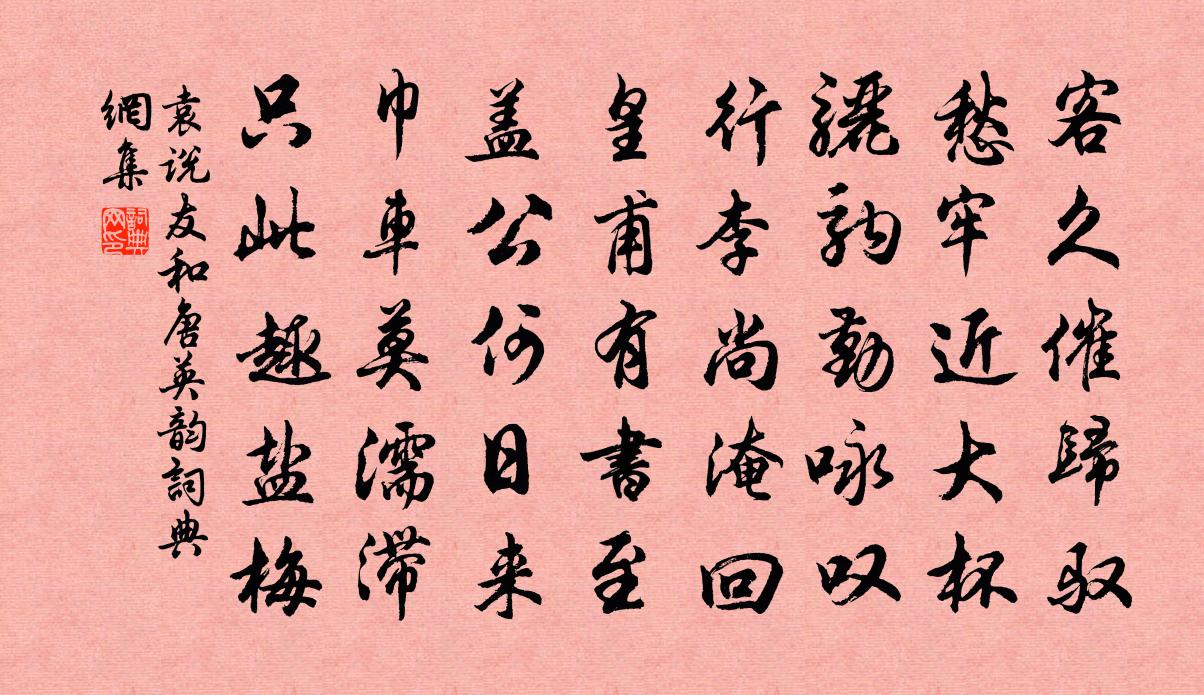 客久催歸驭
愁牢近大杯
骊驹勤咏叹
行李尚淹回
皇甫有書至
盖公何日来
巾車莫濡滞
只此趣盐梅
袁说友和唐英韵詞典
網集
詞典網印